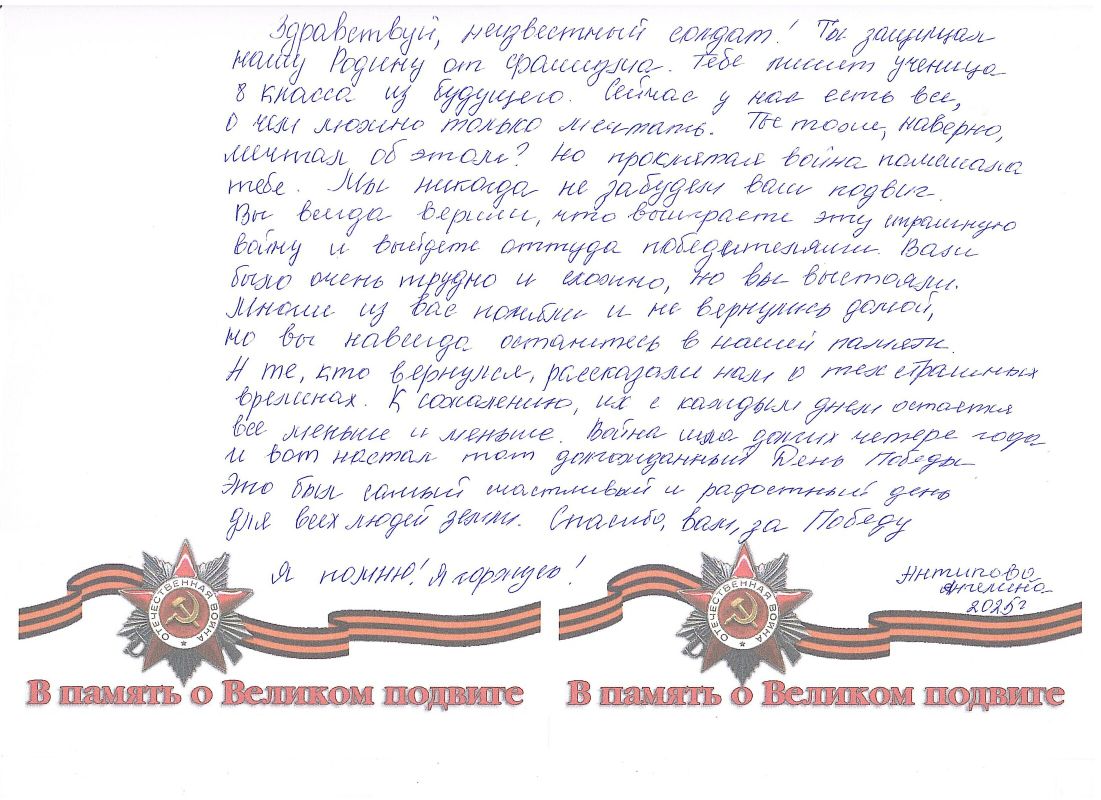 Здравствуй, неизвестный солдат! Ты защищал
нашу Родину от фашизма. Тебе пишет ученица
8 класса из будущего. Сейчас у нас есть все,
о чем можно только мечтать. Ты тоже, наверно,
мечтал об этом? Но проклятая война помешала
тебе. Мы никогда не забудем ваш подвиг.
Вы всегда верили, что выиграете эту страшную
войну и выйдете оттуда победителями. Вам
было очень трудно и сложно, но вы выстояли.
Многие из вас погибли и не вернулись домой,
но вы навсегда останетесь в нашей памяти.
А те, кто вернулся, рассказали нам о тех страшных
временах. К сожалению, их с каждым днем остается
все меньше и меньше. Война шла долгих четыре года
и вот настал тот долгожданный День Победы
Это был самый счастливый и радостный день
для всех людей земли. Спасибо, вам, за Победу
Я помню! Я горжусь!
Антипова
Ангелина
2025 г
ОТЕЧЕСТВЕННАЯ ВОЙНА
ОТЕЧЕСТВЕННАЯ ВОЙНА
В память о Великом подвиге
В память о Великом подвиге